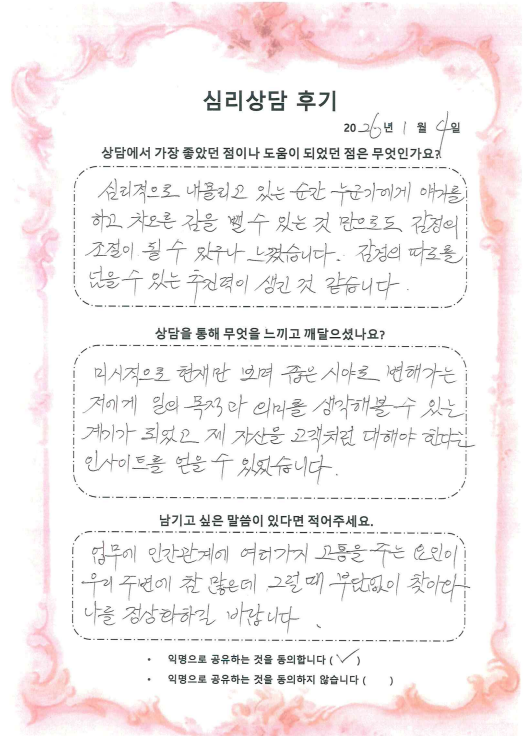 심리상담 후기
2026년 1월 4일
상담에서 가장 좋았던 점이나 도움이 되었던 점은 무엇인가요?
심리적으로 내몰리고 있는 순간 누군가에게 얘기를
하고 차오른 감을 뺄 수 있는 것 만으로도 감정의
조절이 될 수 있구나 느꼈습니다. 감정의 파고를
넘을 수 있는 추진력이 생긴 것 같습니다.
상담을 통해 무엇을 느끼고 깨달으셨나요?
미시적으로 현재만 보며 좁은 시야로 변해가는
저에게 일의 목적과 의미를 생각해볼 수 있는
계기가 되었고 제 자신을 고객처럼 대해야 한다는
인사이트를 얻을 수 있었습니다.
남기고 싶은 말씀이 있다면 적어주세요.
업무에 인간관계에 여러가지 고통을 주는 요인이
우리 주변에 참 많은데 그럴 때 부담없이 찾아와
나를 정상화하길 바랍니다.
• 익명으로 공유하는 것을 동의합니다 ( ✓ )
• 익명으로 공유하는 것을 동의하지 않습니다 ( )